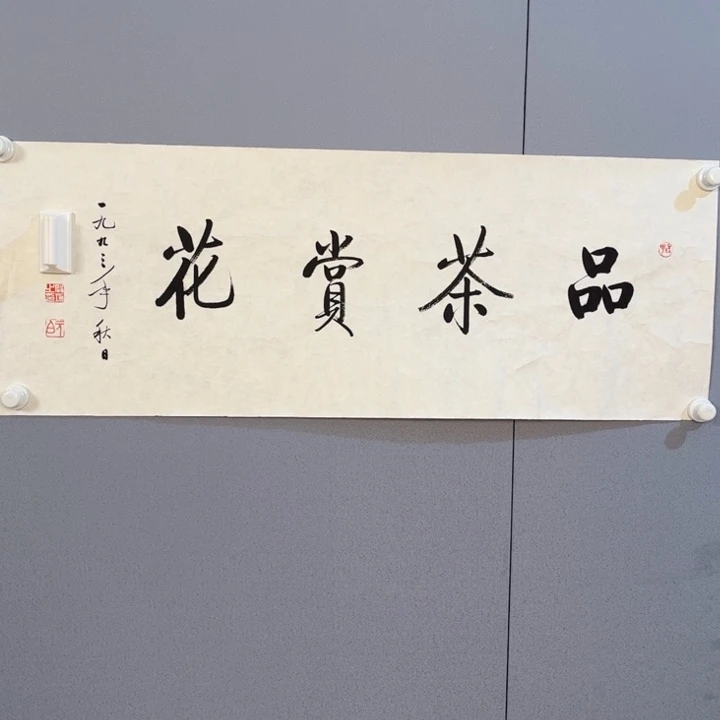 品茶賞花
一九九三年秋日